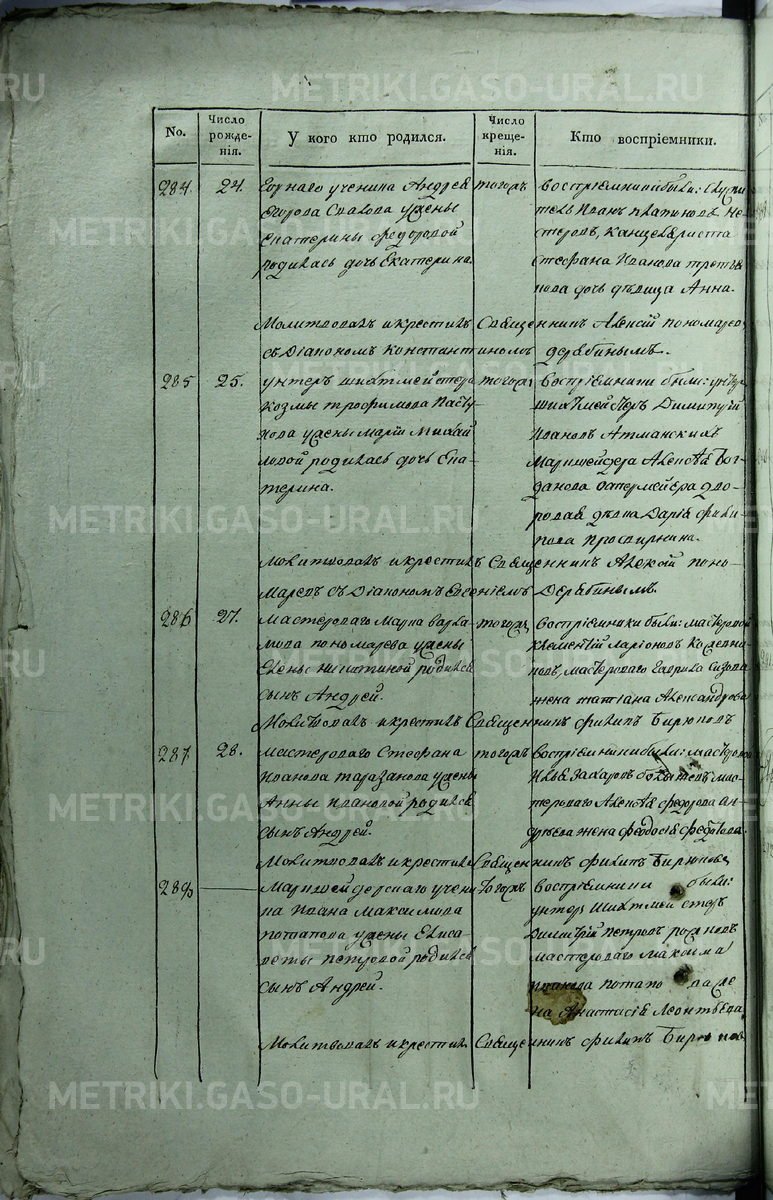 METRIKI.GASO-URAL.RU
No.
Число рожде-нія.
У кого кто родился.
Число креще-нія.
Кто воспріемники.
284
24.
Горнаго ученика Андрея
Егорова жены
Екатерины Федоровой
родилась дочь Екатерина
тогожъ
Воспріемники были:
Иванъ
Канцеляриста
Стефана Иванова
дочь девица Анна.
Молитвовалъ и крестилъ Священникъ Алексій Пономаревъ
съ Діакономъ Константиномъ Дерябинымъ.
285
25.
Унтеръ шихтмейстера
Козмы Трофимова
жены Маріи Михай
ловой родилась дочь Ека-
терина.
тогожъ
Воспріемники были: унтеръ
шихтмейстеръ Димитрій
Ивановъ
Маркшейдера Алексѣя Бог
данова
Дарія Фили
пова
Молитвовалъ и крестилъ Священникъ Алексій Поно-
маревъ съ Діакономъ Дерябинымъ.
286
27.
Мастероваго Марка Варла
мова Пономарева жены
Елены Никитиной родился
сынъ Андрей.
тогожъ
Воспріемники были: мастеровой
Климентій Ларіоновъ
мастероваго Гаврила Сизова
жена Татіана Александрова
Молитвовалъ и крестилъ Священникъ Филипъ Бирюковъ
287
28.
Мастероваго Стефана
Иванова Таразанова жены
Анны Ивановой родился
сынъ Андрей.
тогожъ
Воспріемники были: мастеровой
Илья Захаровъ мас-
тероваго Алексѣя Федорова Ан
дреева жена Феодосія Федорова.
Молитвовалъ и крестилъ Священникъ Филипъ Бирюковъ
288
Маркшейдерскаго учени
ка Ивана Максимова
Потапова жены Елиса
веты Петровой родился
сынъ Андрей.
тогожъ
Воспріемники были:
унтеръ шихтмейстеръ
Димитрій Петровъ
мастероваго Максима
Иванова Потапова же
на Анастасія Леонтьева.
Молитвовалъ и крестилъ Священникъ Филипъ Бирюковъ